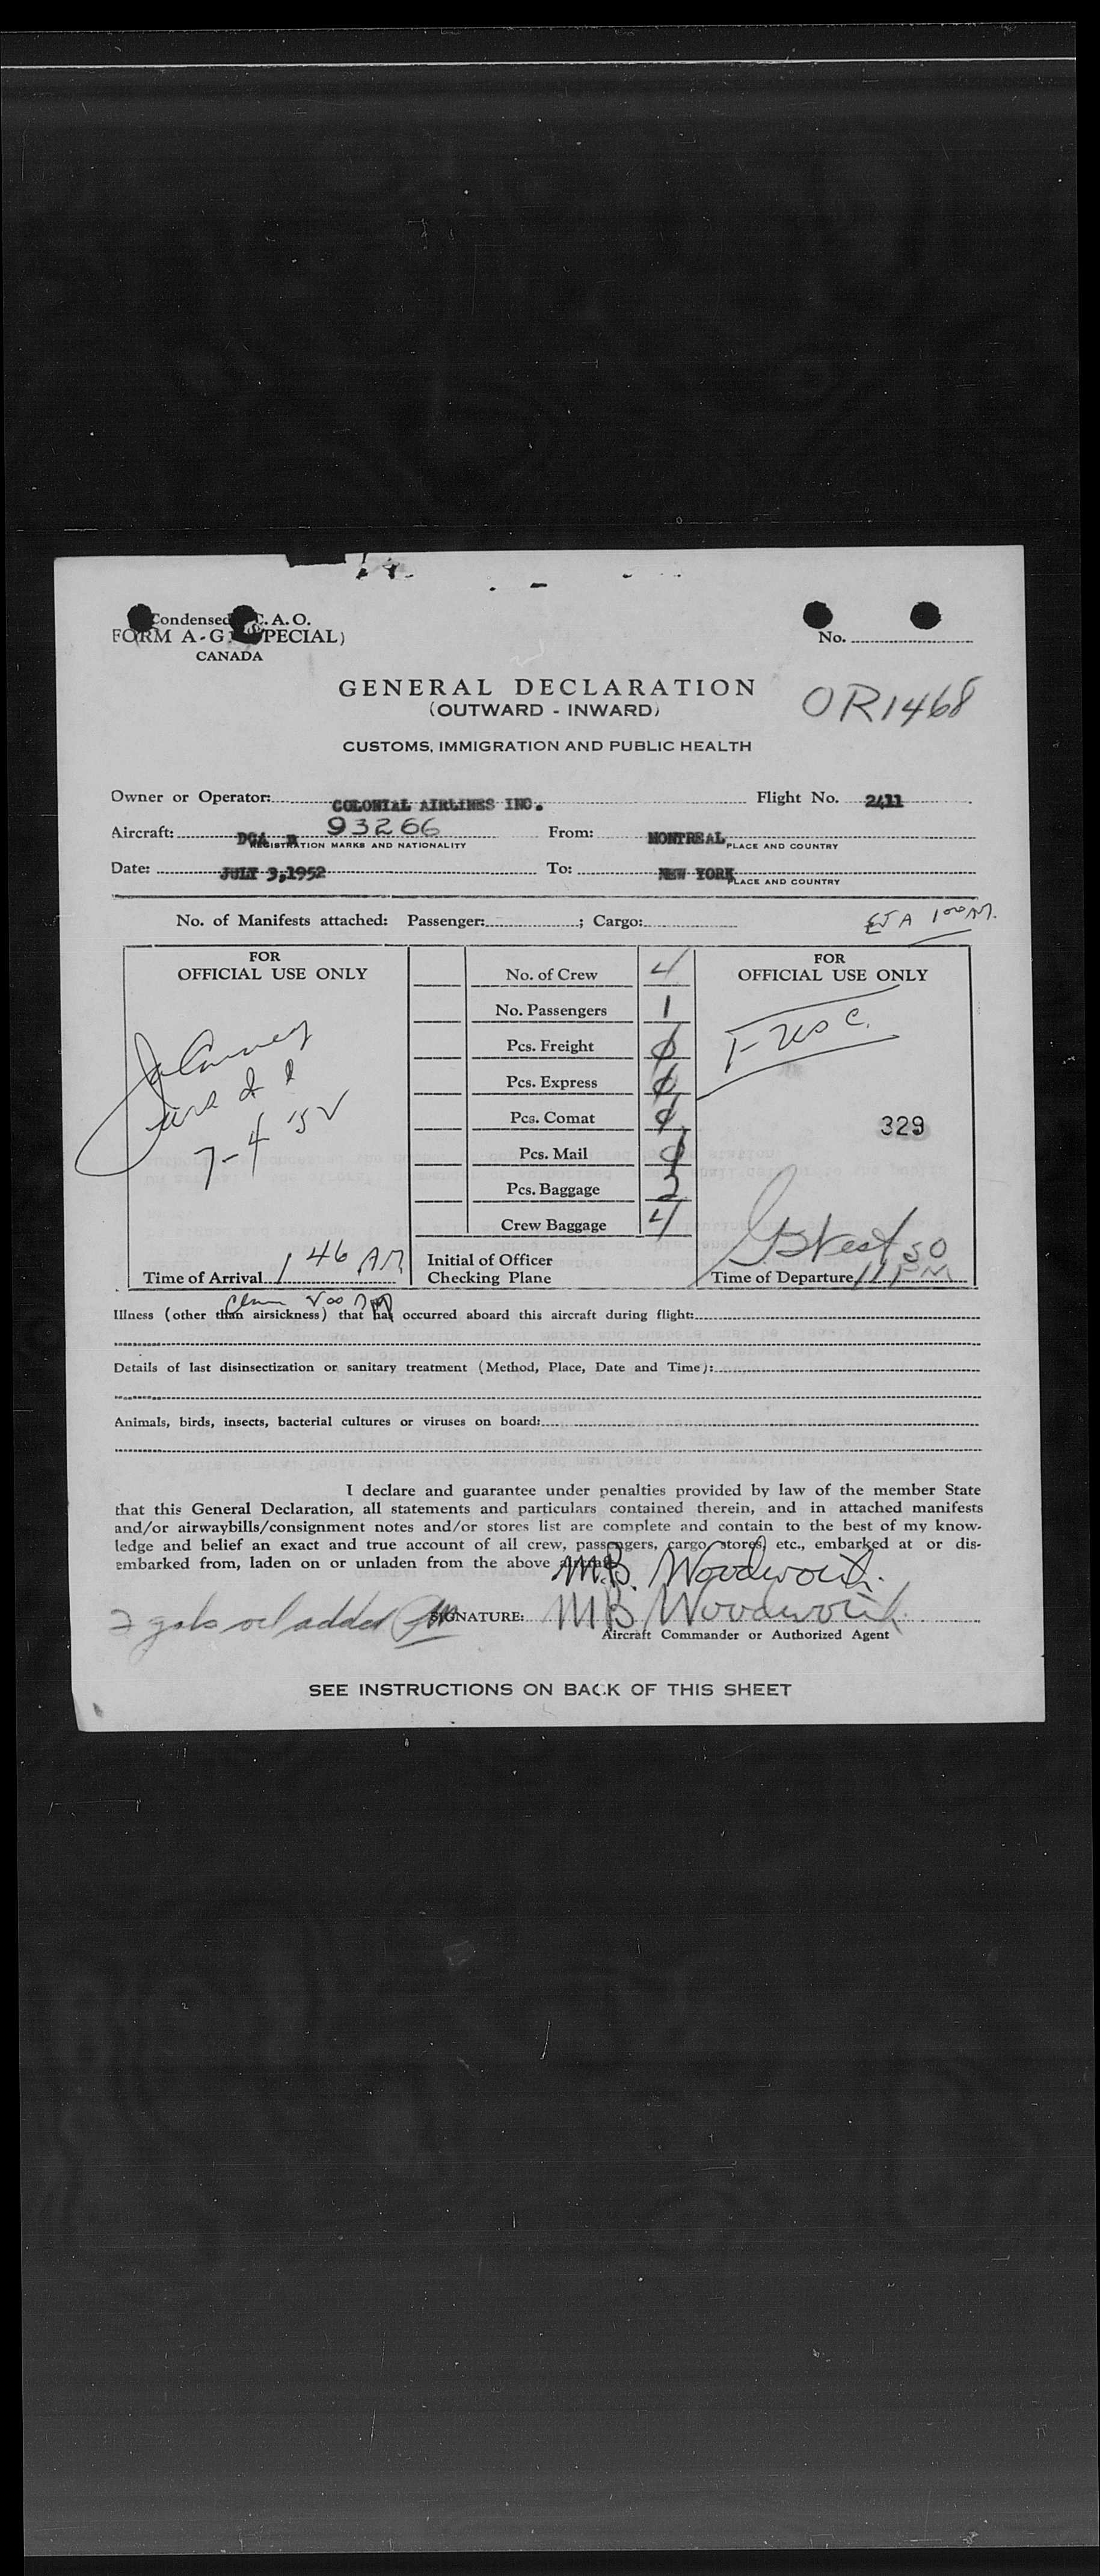 Condensed I.C.A.O.
FORM A-G1 (SPECIAL)
CANADA
No.
GENERAL DECLARATION
(OUTWARD - INWARD)
OR1468
CUSTOMS, IMMIGRATION AND PUBLIC HEALTH
Owner or Operator: COLONIAL AIRLINES INC. Flight No. 2411
Aircraft: DC4 N 93266 From: MONTREAL
REGISTRATION MARKS AND NATIONALITY PLACE AND COUNTRY
Date: JULY 3,1952 To: NEW YORK
PLACE AND COUNTRY
No. of Manifests attached: Passenger: ; Cargo:
ETA 100 AM.
FOR
OFFICIAL USE ONLY
7-4-52
Time of Arrival 1 46 AM
No. of Crew 4
No. Passengers 1
Pcs. Freight 0
Pcs. Express 0
Pcs. Comat 0
Pcs. Mail 0
Pcs. Baggage 2
Crew Baggage 4
Initial of Officer
Checking Plane
FOR
OFFICIAL USE ONLY
1-USC.
329
Time of Departure 11 50 PM
Illness (other than airsickness) that has occurred aboard this aircraft during flight:
Details of last disinsectization or sanitary treatment (Method, Place, Date and Time):
Animals, birds, insects, bacterial cultures or viruses on board:
I declare and guarantee under penalties provided by law of the member State
that this General Declaration, all statements and particulars contained therein, and in attached manifests
and/or airwaybills/consignment notes and/or stores list are complete and contain to the best of my know-
ledge and belief an exact and true account of all crew, passengers, cargo, stores, etc., embarked at or dis-
embarked from, laden on or unladen from the above aircraft.
M.B. Woodworth.
2 gals oil added
SIGNATURE: M B Woodworth.
Aircraft Commander or Authorized Agent
SEE INSTRUCTIONS ON BACK OF THIS SHEET